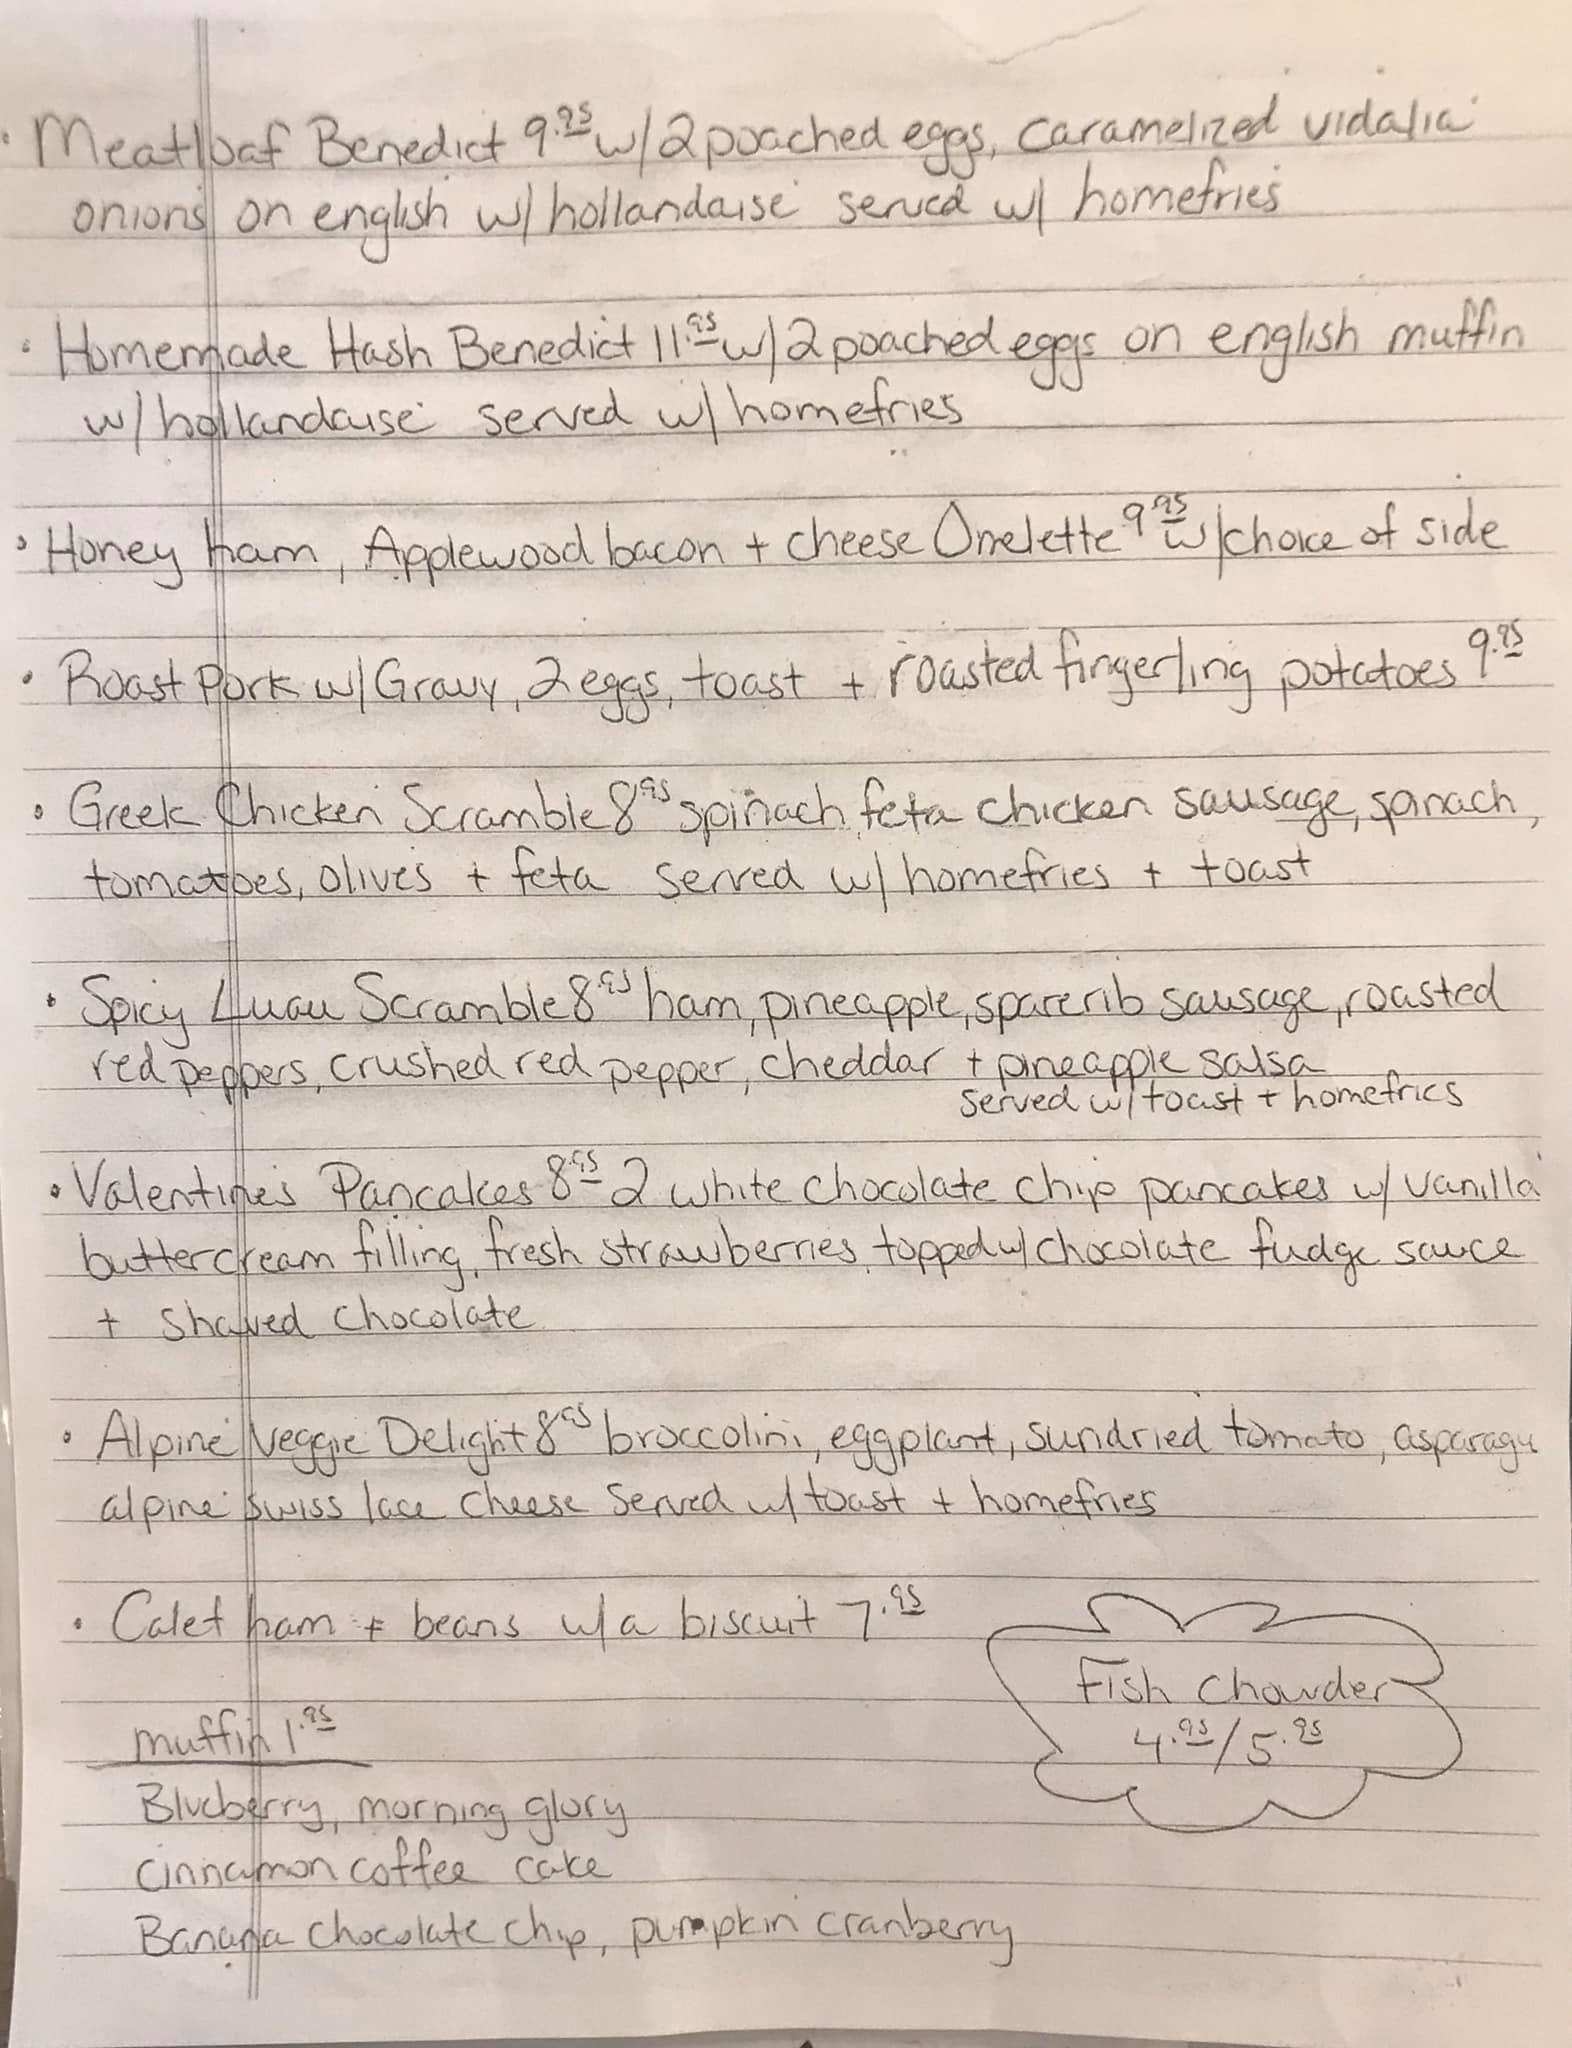 · Meatloaf Benedict 9.95 w/ 2 poached eggs, caramelized vidalia
onions on english w/ hollandaise served w/ homefries
· Homemade Hash Benedict 11.95 w/ 2 poached eggs on english muffin
w/ hollandaise served w/ homefries
· Honey ham, Applewood bacon + cheese Omelette 9.95 w/ choice of side
· Roast Pork w/ Gravy, 2 eggs, toast + roasted fingerling potatoes 9.95
· Greek Chicken Scramble 8.95 spinach feta chicken sausage, spinach,
tomatoes, olives + feta served w/ homefries + toast
· Spicy Luau Scramble 8.95 ham, pineapple, sparerib sausage, roasted
red peppers, crushed red pepper, cheddar + pineapple salsa
served w/ toast + homefries
· Valentine's Pancakes 8.95 2 white chocolate chip pancakes w/ vanilla
buttercream filling, fresh strawberries, topped w/ chocolate fudge sauce
+ shaved chocolate
· Alpine Veggie Delight 8.95 broccolini, eggplant, sundried tomato, asparagu
alpine swiss lace cheese served w/ toast + homefries
· Calet ham + beans w/ a biscuit 7.95
Fish Chowder
4.95/5.95
muffin 1.95
Blueberry, morning glory
cinnamon coffee cake
Banana chocolate chip, pumpkin cranberry